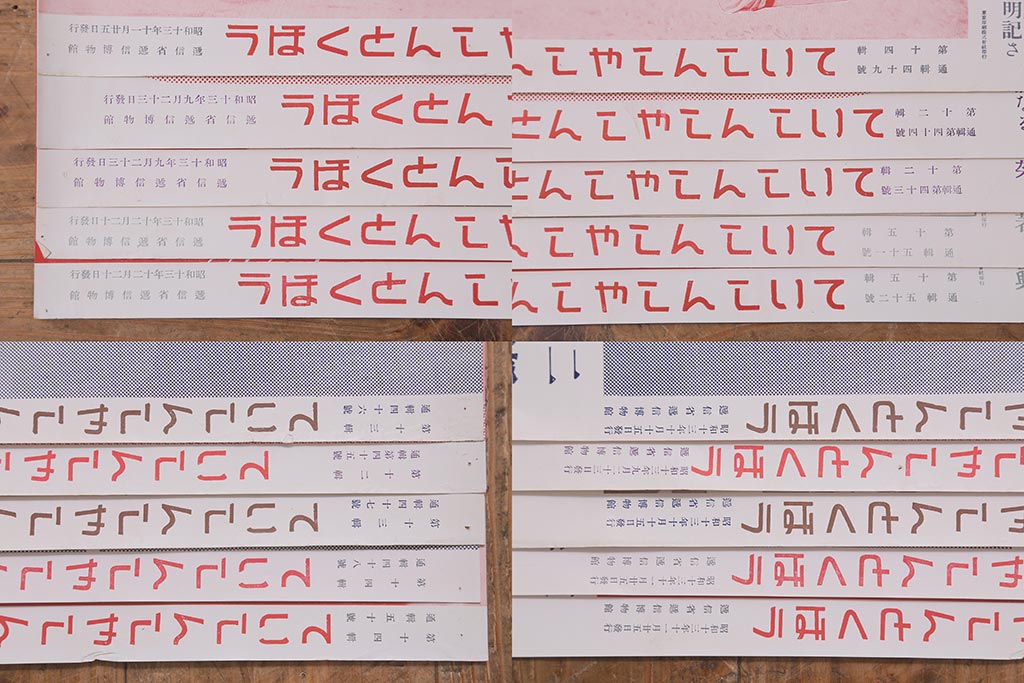 しんとくほう
昭和十三年十一月廿五日發行
遞信省遞信博物館
んとくほう
昭和十三年九月二十三日發行
遞信省遞信博物館
んとくほう
昭和十三年九月二十三日發行
遞信省遞信博物館
しんとくほう
昭和十三年十二月二十日發行
遞信省遞信博物館
しんとくほう
昭和十三年十二月二十日發行
遞信省遞信博物館
明記さ
第十四輯
通輯四十九號
ていしんしやしん
第十二輯
通輯第四十四號
ていしんしやしんと
第十二輯
通輯第四十三號
ていしんしやしん
第十五輯
通輯五十一號
ていしんしやしん
第十五輯
通輯五十二號
ていしんしやしん
第十三輯
通輯四十六號
ていしんしや
第十二輯
通輯第四十五號
ていしんし
第十三輯
通輯四十七號
ていしんしや
第十四輯
通輯四十八號
ていしんしや
第十四輯
通輯五十號
ていしんしやし
やしんとくほう
昭和十三年十月十五日發行
遞信省遞信博物館
しやしんとくほう
昭和十三年九月二十三日發行
遞信省遞信博物館
やしんとくほう
昭和十三年十月十五日發行
遞信省遞信博物館
やしんとくほう
昭和十三年十一月廿五日發行
遞信省遞信博物館
しんとくほう
昭和十三年十一月廿五日發行
遞信省遞信博物館